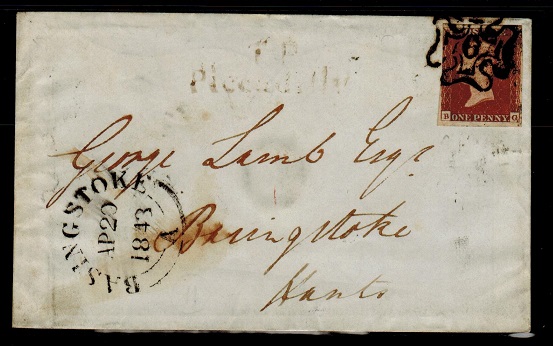 T.P
Piccadilly
6
B ONE PENNY G
George Lamb Esqr
BASINGSTOKE
AP 20
1843
A
Basingstoke
Hants